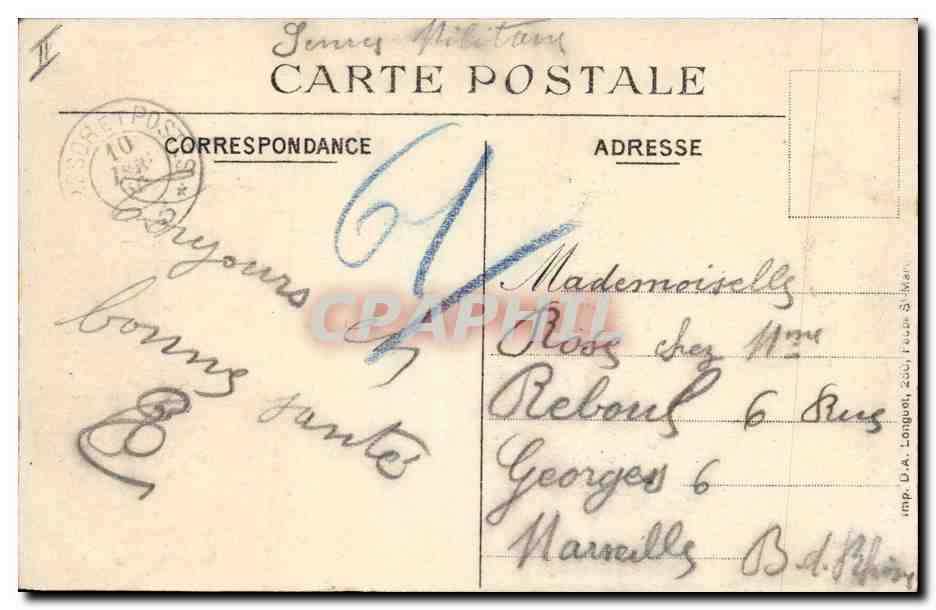 II
Militaire
CARTE POSTALE
TRESOR ET POSTES
10
CORRESPONDANCE
ADRESSE
61
Toujours en
bonne santé
Mademoiselle
Rose chez Mme
Reboul 6 Rue
Georges 6
Marseille B. d. Rhône
CPAPHIL
Imp. D.A. Longuet, 250, Faubg St Mar